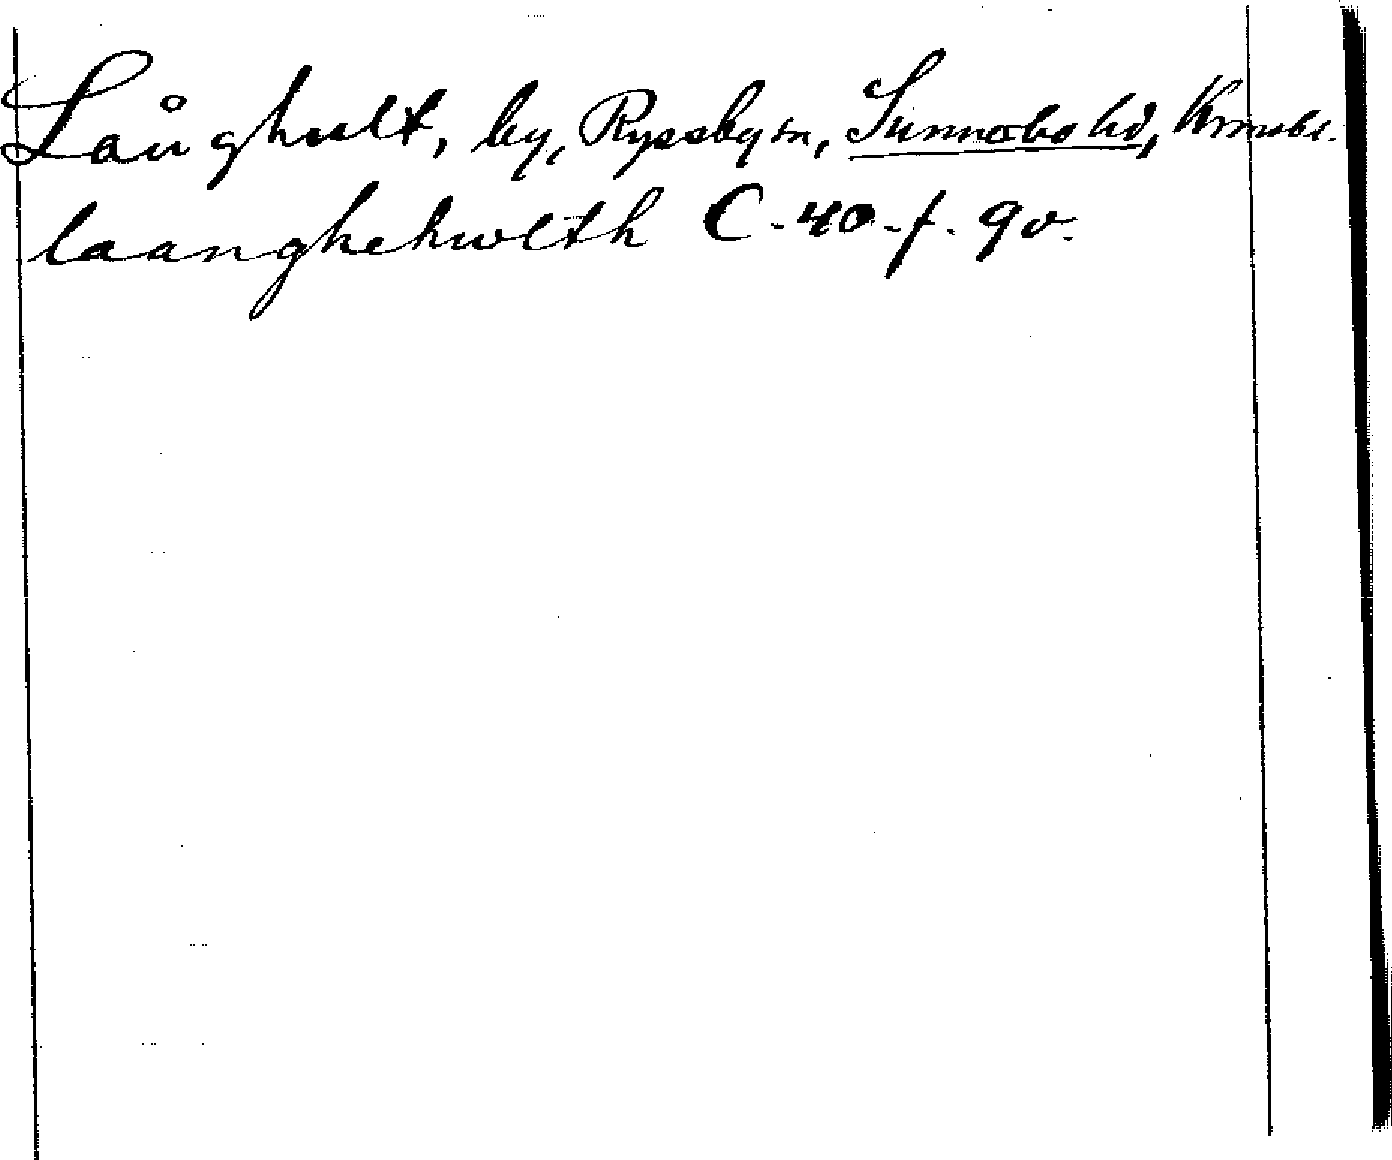 Långhult, by, Ryssby sn, Sunnerbo hd, Kronobl.
laanghehwlth C-40-f. 9v.